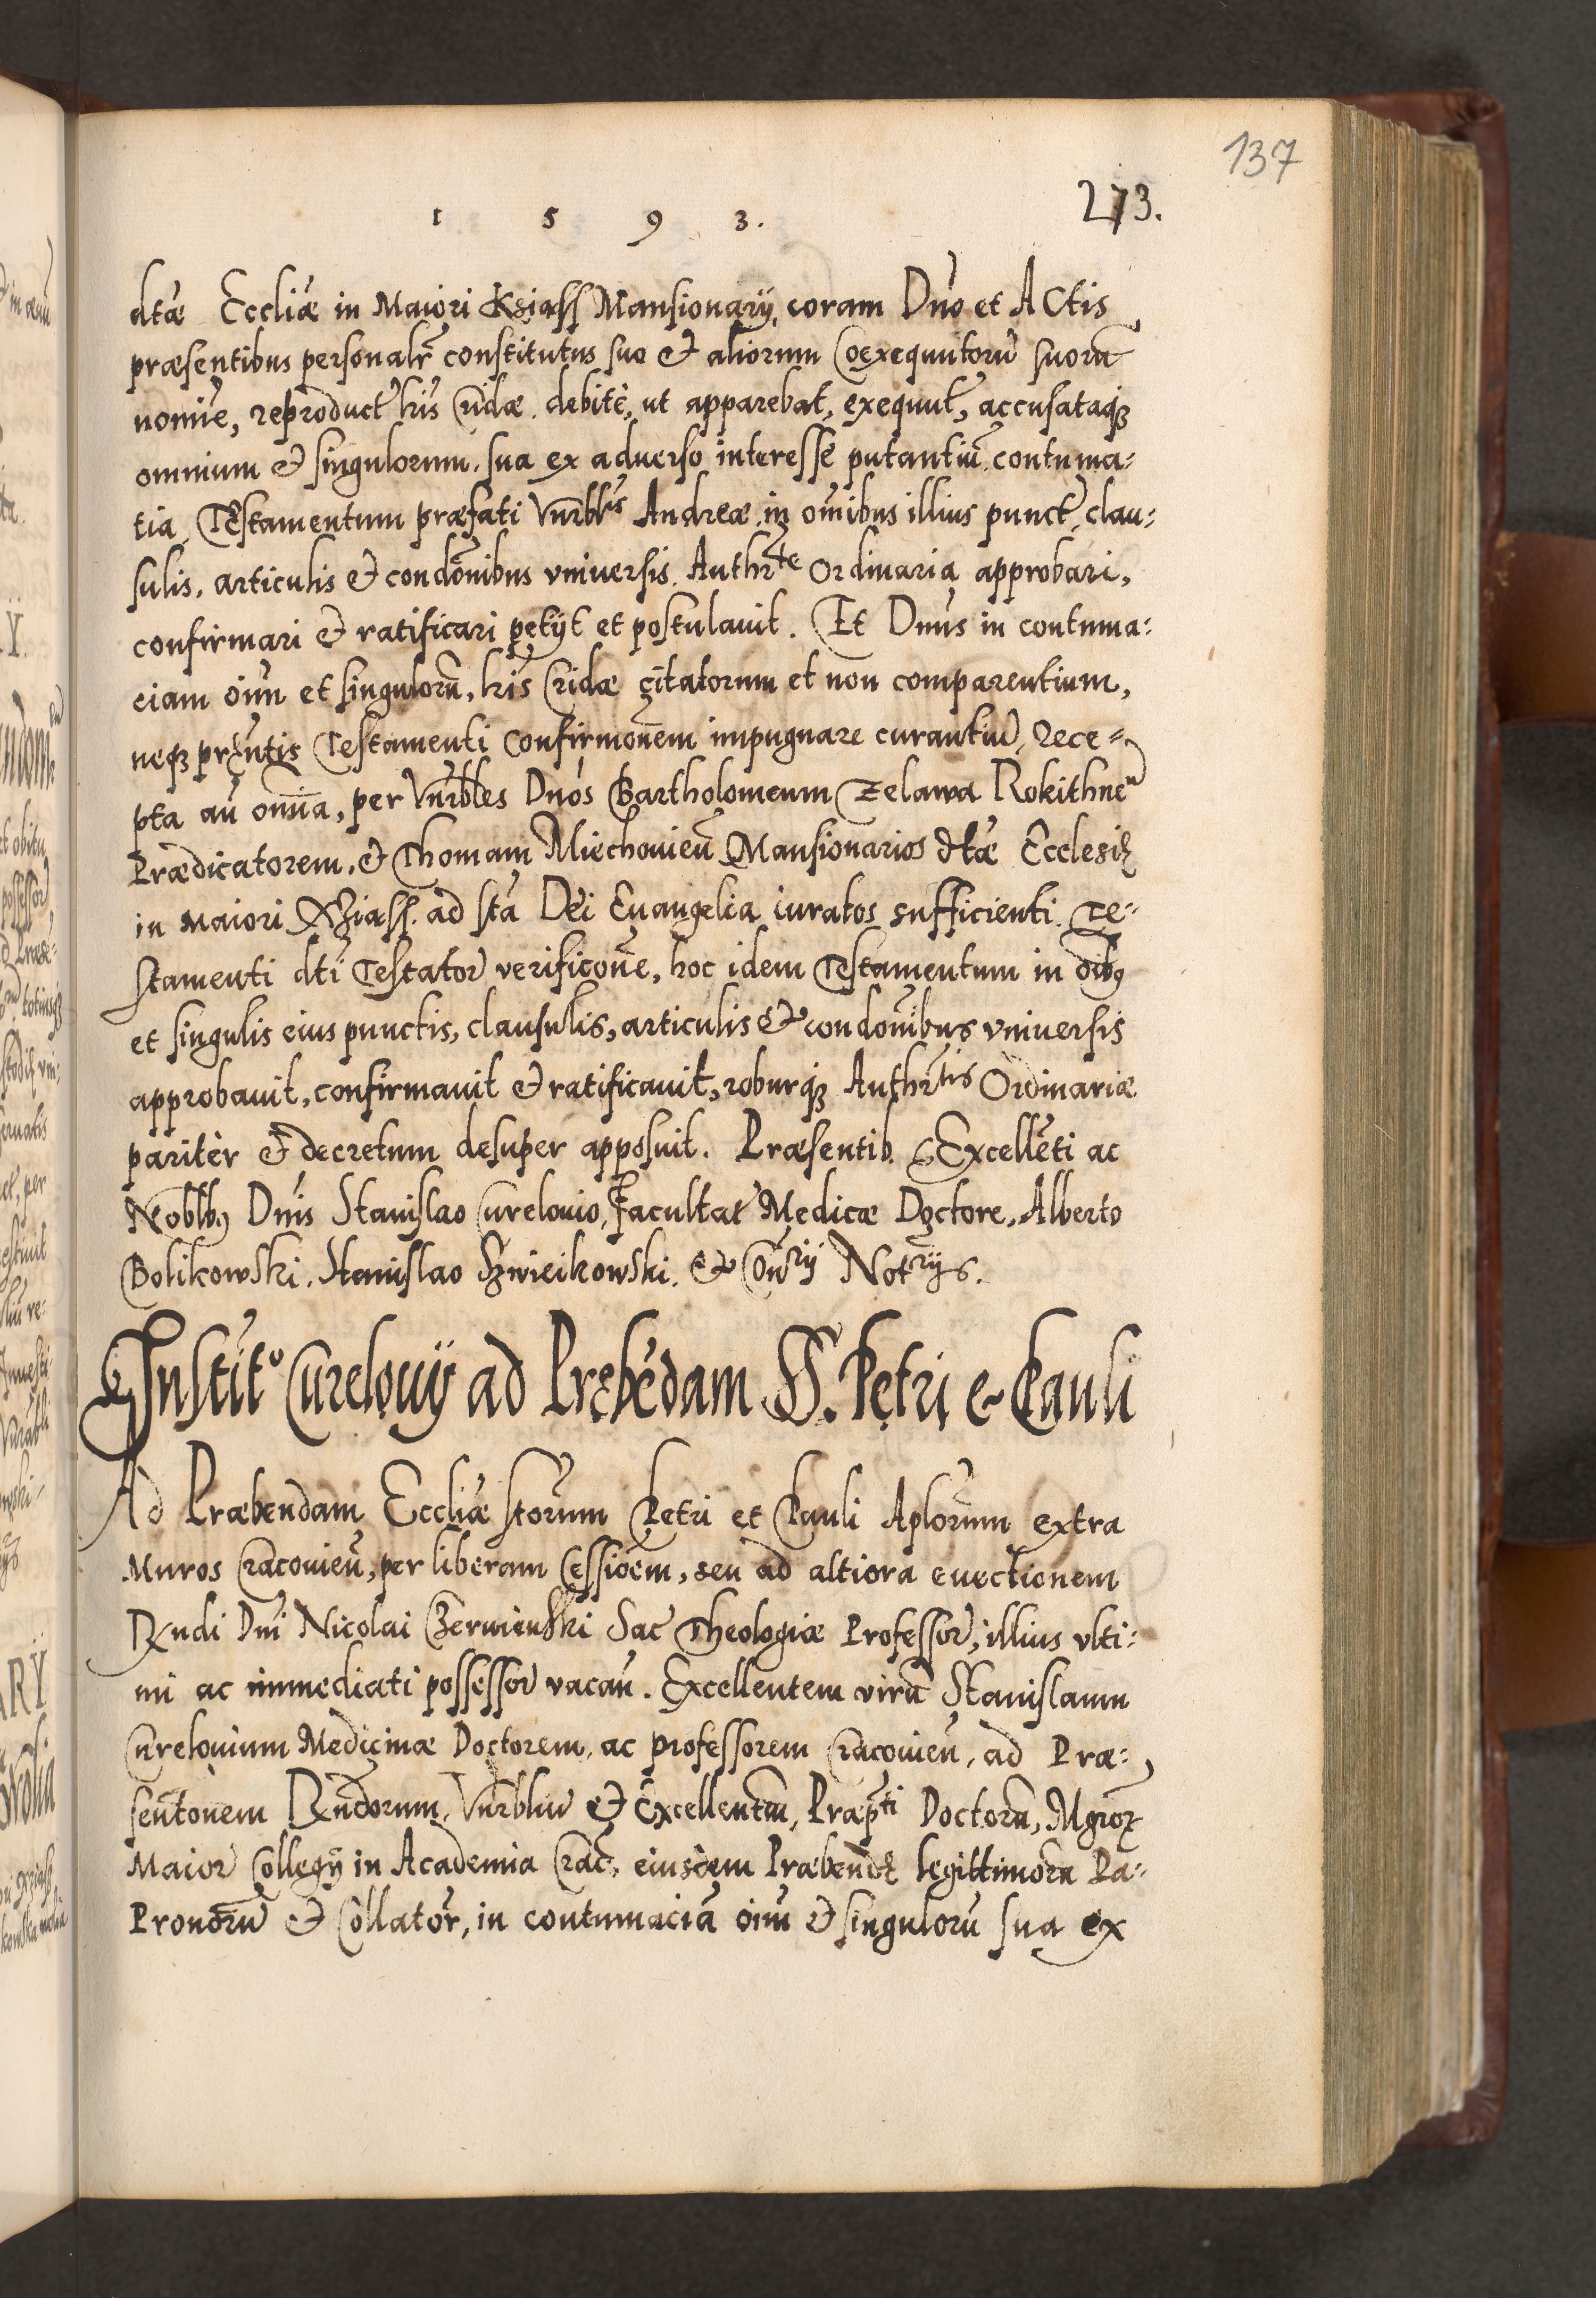 137
1 5 9 3. 273.
dtæ Eccliæ in Maiori Xsiasß Mansionarij, coram Dno et Actis
præsentibus personalr constitutus suo & aliorum Coexequutorũ suorũ
nomĩe, reproduct lris Cridæ debitè, ut apparebat, exequut, accusataq3
omnium & singulorum, sua ex aduerso interesse putantiũ contuma=
tia, Testamentum præfati Vnrblis Andreæ in omĩbus illius punct, clau=
sulis, articulis & condõnibus vniuersis, Authrte Ordinaria approbari,
confirmari & ratificari petijt et postulauit. Et Dnus in contuma=
ciam oĩum et singulorũ, lris Cridæ citatorum et non comparentium,
neq3 prȩntis Testamenti confirmonem impugnare curantiũ, rece=
pta añ omnia, per Vnrbles Dnos Bartholomeum Zelawa Rokithneñ
Prædicatorem, & Thomam Miechouień Mansionarios dtæ Ecclesiȩ
in Maiori Xziasß. ad sta Dei Euangelia iuratos sufficienti Te=
stamenti dti Testator verificone, hoc idem Testamentum in oĩb9
et singulis eius punctis, clausulis, articulis & condonibus vniuersis
approbauit, confirmauit & ratificauit, roburq3 Authrtis Ordinariæ
paritèr & decretum desuper apposuit. Præsentib. Excellẽti ac
Noblb9 Dnis Stanislao Curelouio, Facultat Medicæ Doctore, Alberto
Bolikowski, Stanislao Szwieikowski. & Conrij Notrijs.
Instito Curelouij ad Prȩbẽdam SS. Petri & Pauli
Ad Præbendam Eccliæ storum Petri et Pauli Aplorum extra
Muros Cracouień, per liberam Cessioẽm, seu ad altiora euectionem
Rndi Dni Nicolai Czerwienski Sac Theologiæ Professor, illius vlti=
mi ac immediati possessor vacañ. Excellentem virũ Stanislaum
Curelouium Medicinæ Doctorem, ac professorem Cracouień, ad Præ=
sentonem Rndorum, Vnrbliũ & Excellentũ, Præpti Doctorũ, Mgror
Maior Collegij in Academia Crac, eiusdem Præbendȩ legittimorũ Pa=
Pronorũ & Collator, in contumaciã oĩum & singulorũ sua ex